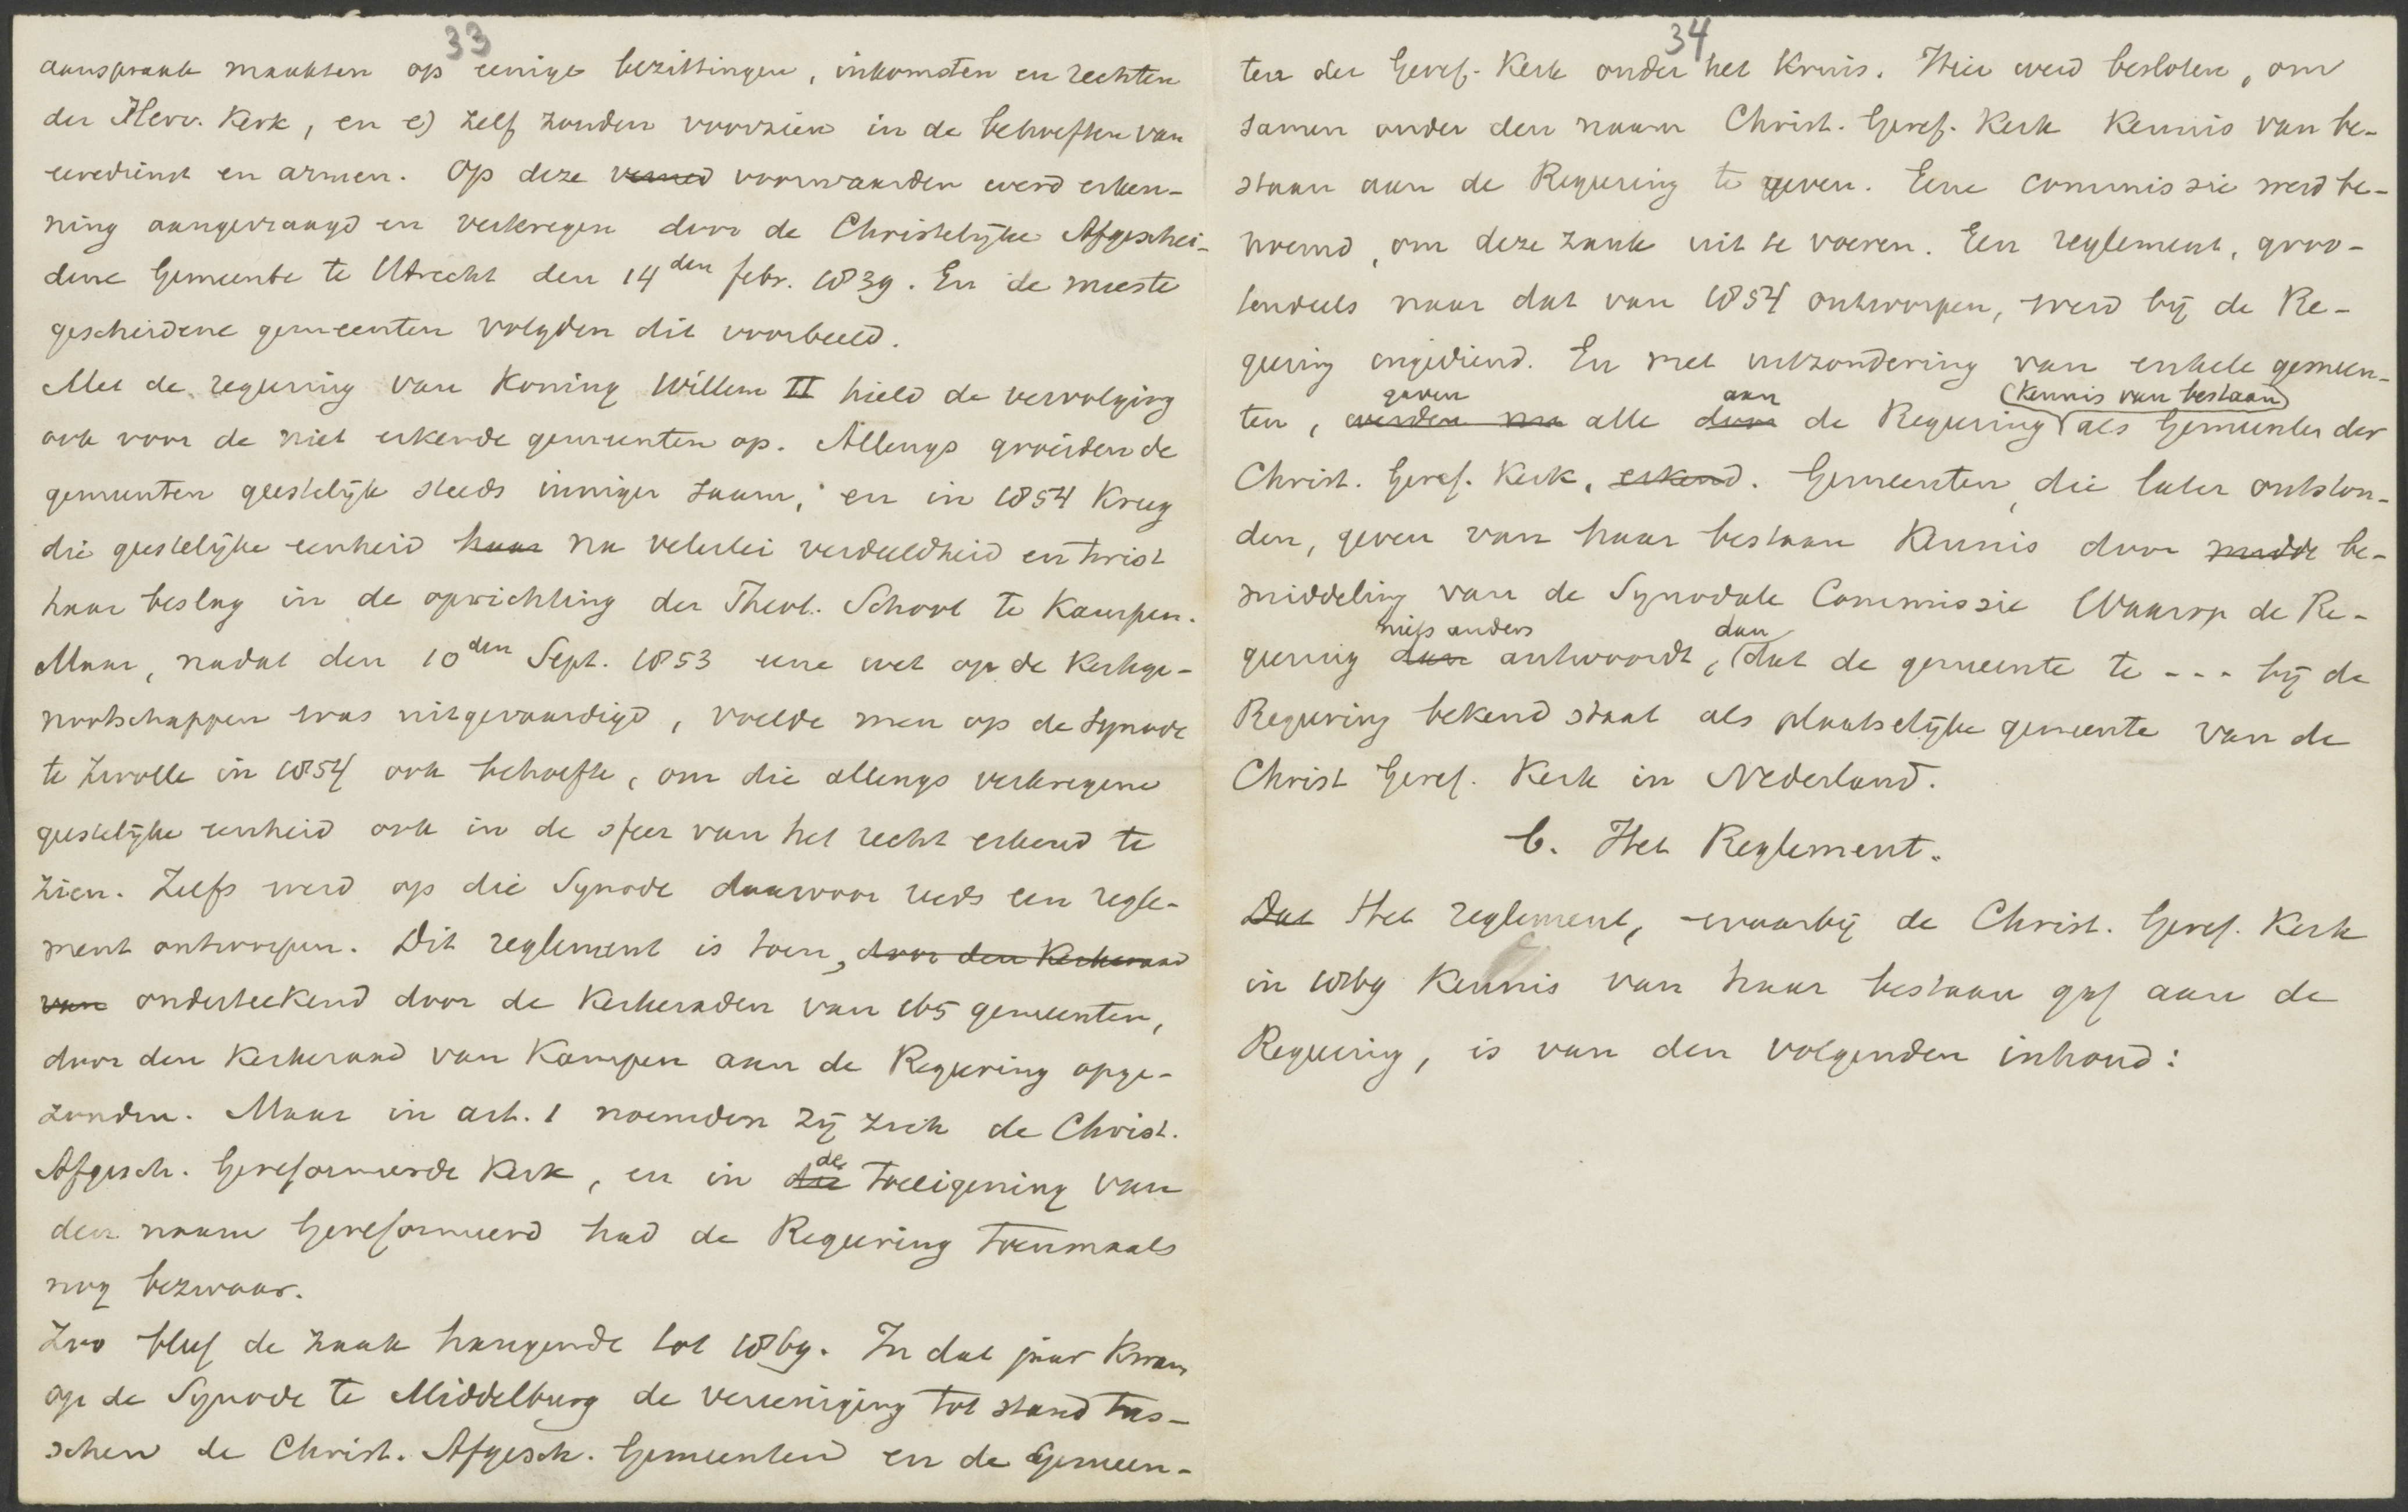 33
aanspraak maakten op eenige bezittingen, inkomsten en rechten
der Herv. Kerk, en e) zelf zouden voorzien in de behoeften van
eeredienst en armen. Op deze voorwaarden werd erken-
ning aangevraagd en verkregen door de Christelijke Afgeschei-
dene Gemeente te Utrecht den 14den febr. 1839. En de meeste
gescheidene gemeenten volgden dit voorbeeld.
Met de regeering van Koning Willem II hield de vervolging
ook voor de niet erkende gemeenten op. Allengs groeiden de
gemeenten geestelijk steeds inniger zaam, en in 1854 kreeg
die geestelijke eenheid haar na velerlei verdeeldheid en twist
haar beslag in de oprichting der Theol. School te Kampen.
Maar, nadat den 10den Sept. 1853 eene wet op de Kerkge-
nootschappen was uitgevaardigd, voelde men op de Synode
te Zwolle in 1854 ook behoefte, om die allengs verkregene
geestelijke eenheid ook in de sfeer van het recht erkend te
zien. Zelfs werd op die Synode daarvoor reeds een regle-
ment ontworpen. Dit reglement is toen, door den Kerkeraad
van onderteekend door de Kerkeraden van 165 gemeenten,
door den Kerkeraad van Kampen aan de Regeering opge-
zonden. Maar in art. 1 noemden zij zich de Christ.
Afgesch. Gereformeerde Kerk, en in die de toeeigening van
den naam Gereformeerd had de Regeering toenmaals
nog bezwaar.
Zoo bleef de zaak hangende tot 1869. In dat jaar kwam
op de Synode te Middelburg de vereeniging tot stand tus-
schen de Christ. Afgesch. Gemeenten en de Gemeen-
34
ten der Geref. Kerk onder het Kruis. Hier werd besloten, om
samen onder den naam Christ. Geref. Kerk Kennis van be-
staan aan de Regeering te geven. Eene commissie werd be-
noemd, om deze zaak uit te voeren. Een reglement, groo-
tendeels naar dat van 1854 ontworpen, werd bij de Re-
geering ingediend. En met uitzondering van enkele gemeen-
gaven aan Kennis van bestaan
ten, werden nu alle door de Regeering als Gemeenten der
Christ. Geref. Kerk, erkend. Gemeenten, die later ontston-
den, geven van haar bestaan Kennis door midde be-
middeling van de Synodale Commissie Waarop de Re-
niets anders dan
geering dan antwoordt, dat de gemeente te --- bij de
Regeering bekend staat als plaatselijke gemeente van de
Christ Geref. Kerk in Nederland.
b. Het Reglement.
Dat Het reglement, waarbij de Christ. Geref. Kerk
in 1869 Kennis van haar bestaan gaf aan de
Regeering, is van den volgenden inhoud: